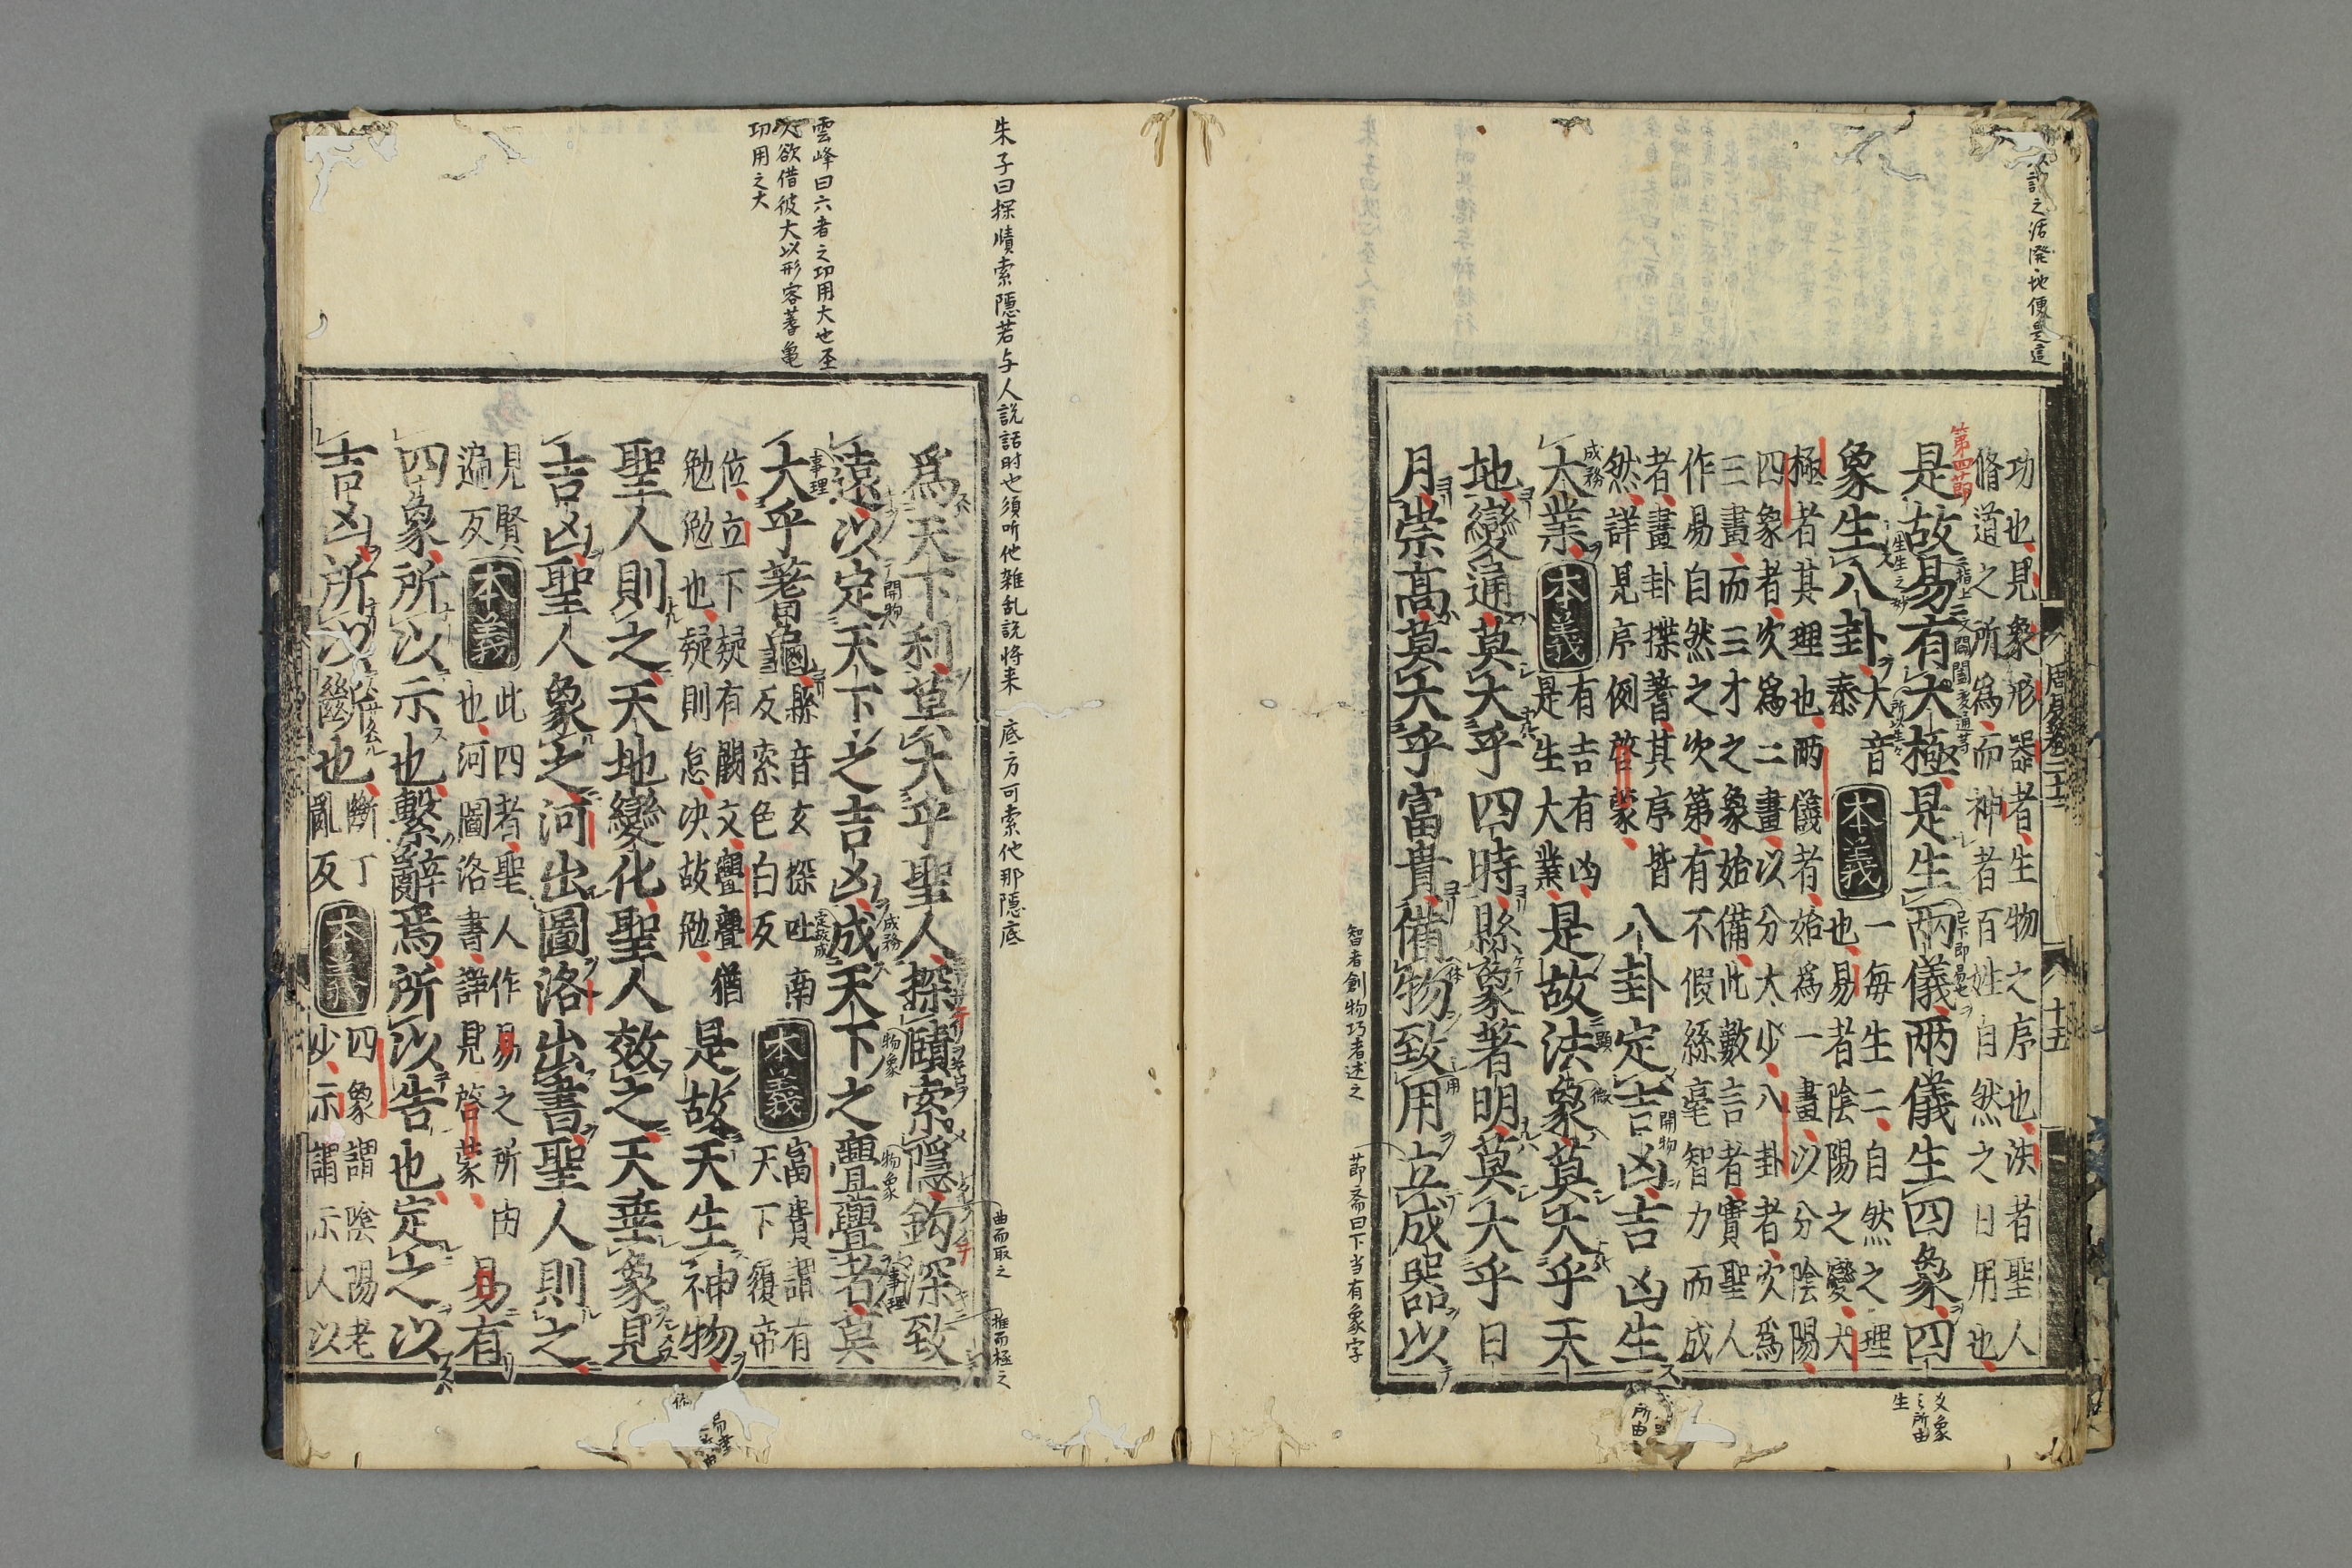 功也見象形器者生物之序也法者聖人
脩道之所爲而神者百姓自然之日用也
第四節
是故易有大極是生兩儀兩儀生四象四
象生八卦
大音
泰
本義
一每生二自然之理
也易者陰陽之變大
極者其理也兩儀者始爲一畫以分陰陽
四象者次爲二畫以分大少八卦者次爲
三畫而三才之象始備此數言者實聖人
作易自然之次第有不假絲毫智力而成
者畫卦揲蓍其序皆
然詳見序例啓蒙
八卦定吉凶吉凶生
大業
本義
有吉有凶
是生大業
是故法象莫大乎天
地變通莫大乎四時縣象著明莫大乎日
月崇高莫大乎富貴備物致用立成器以
成務
開物
智者創物巧者述之
節斎曰下当有象字
周易卷二十二
十五
爲天下利莫大乎聖人探賾索隱鈎深致
遠以定天下之吉凶成天下之亹亹者莫
大乎蓍龜
縣音玄探吐南
反索色白反
本義
富貴謂有
天下履帝
位立下疑有闕文亹亹猶
勉勉也疑則怠決故勉
是故天生神物
聖人則之天地變化聖人效之天垂象見
吉凶聖人象之河出圖洛出書聖人則之
見賢
遍反
本義
此四者聖人作易之所由
也河圖洛書詳見啓蒙
易有
四象所以示也繫辭焉所以告也定之以
吉凶所以斷也
斷丁
亂反
本義
四象謂陰陽老
少示謂示人以
朱子曰探賾索隱若与人説話时也須听他雜乱説将来 底方可索他那隠底
雲峰曰六者之功用大也圣
人欲借彼大以形容蓍亀
功用之大
曲而取之
推而極之